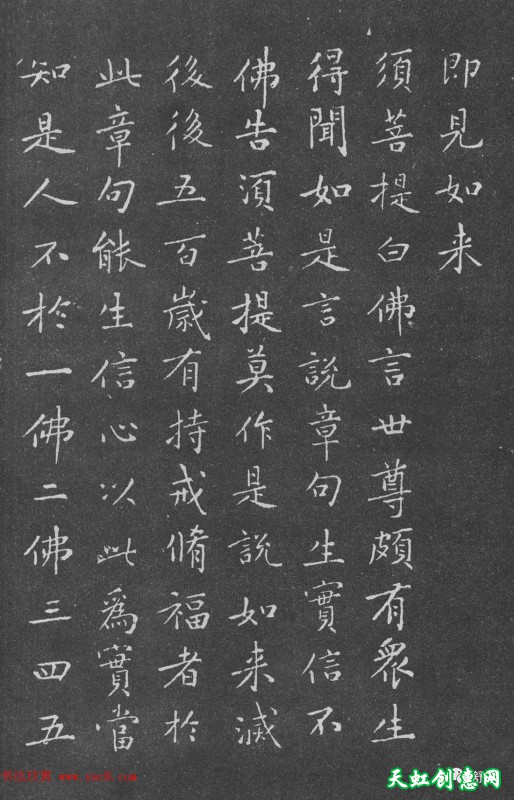 即見如来
須菩提白佛言世尊頗有衆生
得聞如是言說章句生實信不
佛告須菩提莫作是說如来滅
後後五百歲有持戒脩福者於
此章句能生信心以此爲實當
知是人不於一佛二佛三四五
天虹创惠网